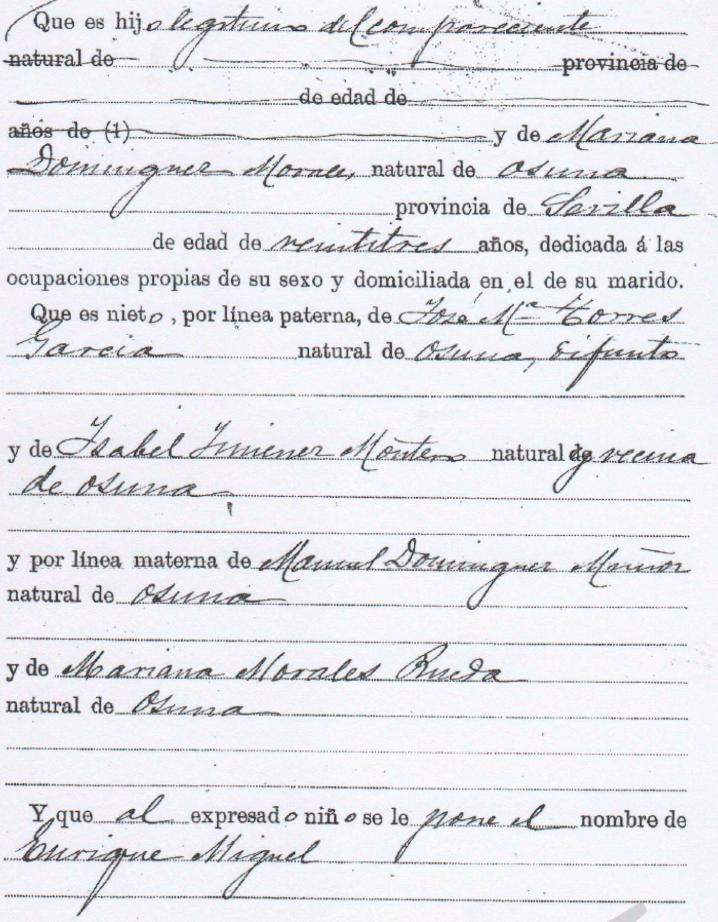 Que es hijo legitimo del compareciente
natural de provincia de
de edad de
años de (1) y de Mariana
Dominguez Morales, natural de Osuna
provincia de Sevilla
de edad de veintitres años, dedicada á las
ocupaciones propias de su sexo y domiciliada en el de su marido.
Que es nieto, por línea paterna, de José Mª Torres
Garcia natural de Osuna, difunto
y de Isabel Jimenez Montero natural y vecina
de Osuna
y por línea materna de Manuel Dominguez Muñoz
natural de Osuna
y de Mariana Morales Rueda
natural de Osuna
Y que al expresado niño se le pone el nombre de
Enrique Miguel